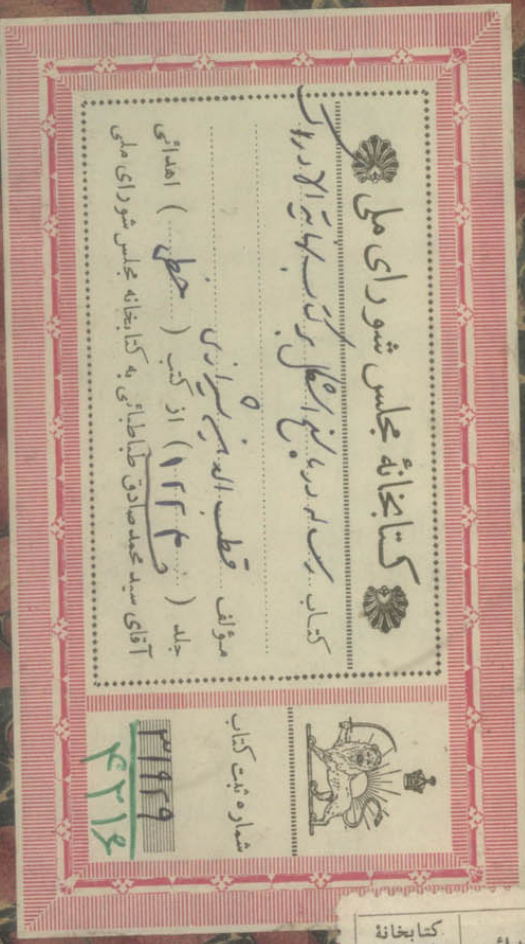 کتابخانهٔ مجلس شورای ملی
کتاب
مؤلف قطب الدین شیرازی
جلد (۱۲۲۳) از کتب (خطی) اهدائی
آقای سید محمد صادق طباطبائی به کتابخانهٔ مجلس شورای ملی
شماره ثبت کتاب
۳۱۹۲۹
۴۲۱۶
کتابخانهٔ